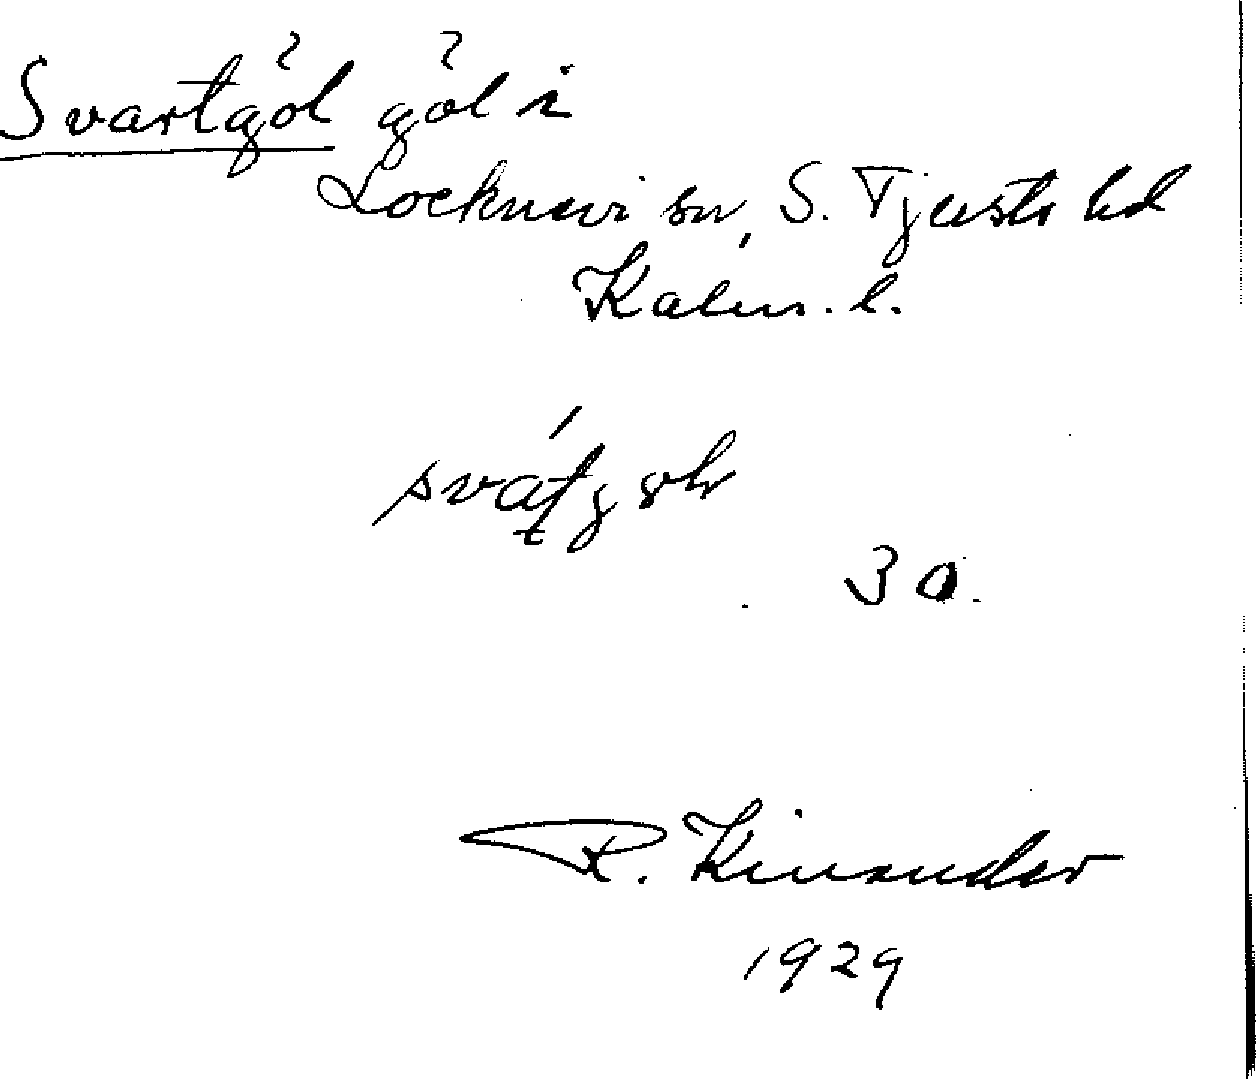 Svartgöl göl i
Locknevi sn, S. Tjusts hd
Kalm. l.
30.
R. Kinander
1929